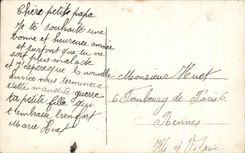 Chère petite papa
Je te souhaite une
bonne et heureuse année
et surtout que tu ne
soit plus malade
et j'espère que la nouvelle
année nous terminera
cette maudite guerre
ta petite fille qui
t'embrasse bien fort
Marie Huet
Monsieur Huet
6 Faubourg de Paris 6
Rennes
Ille et Vilaine